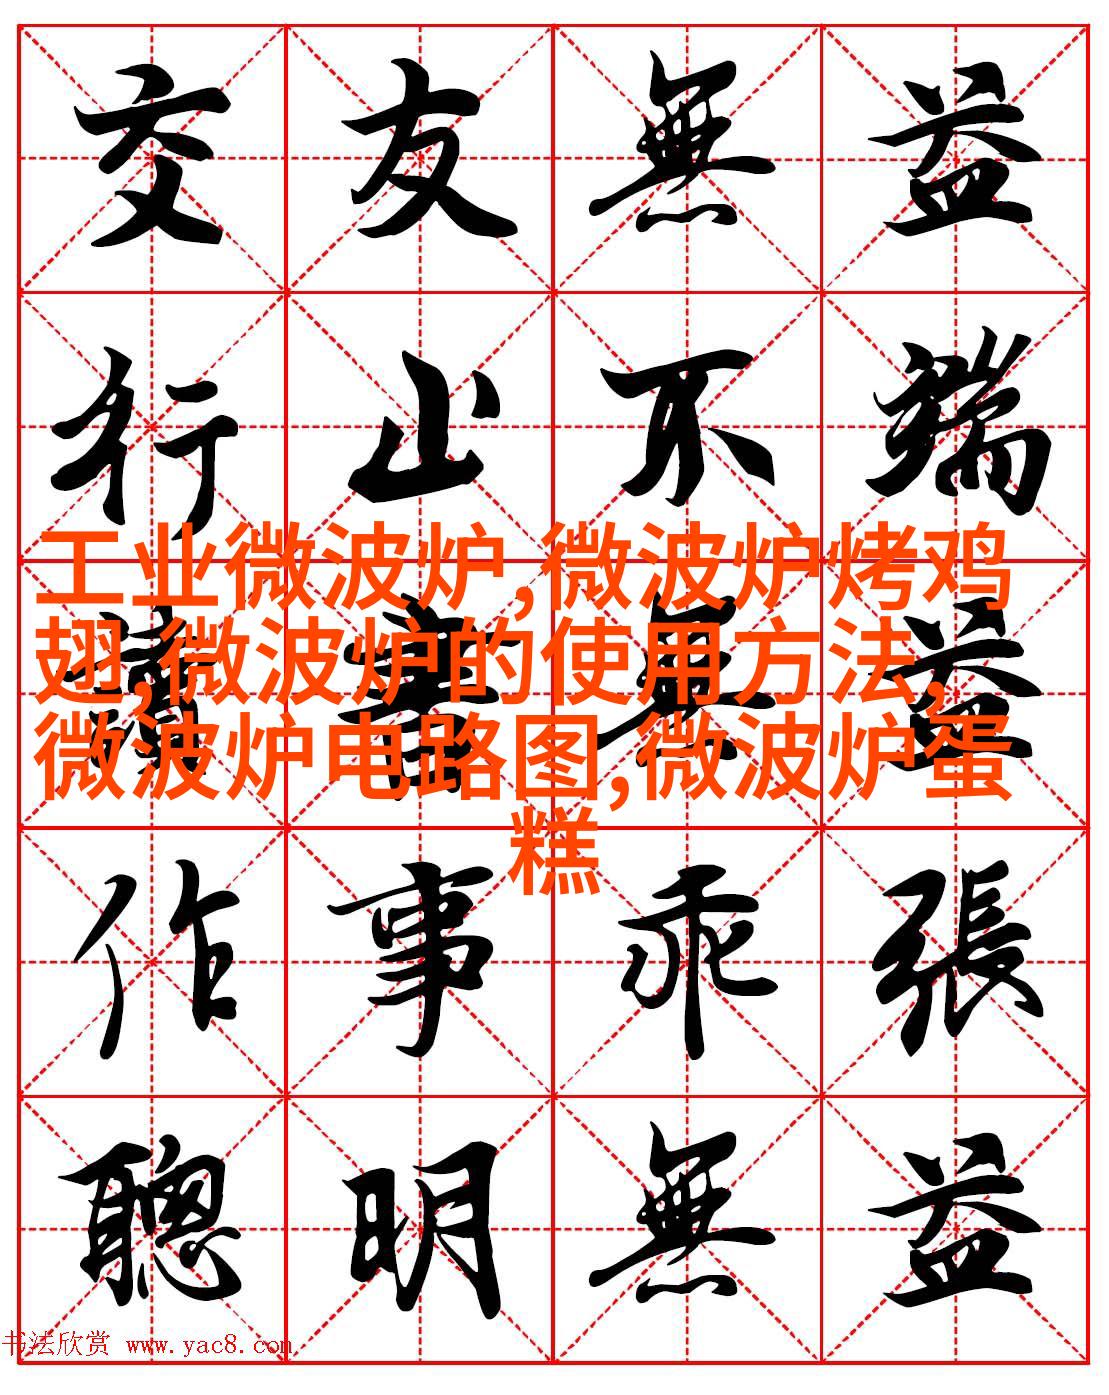 交友無益
行止不端
工业微波炉,微波炉烤鸡
翅,微波炉的使用方法,
微波炉电路图,微波炉蛋
糕
讀書無益
作事乖張
聰明無益
书法欣赏 www.yac8.com